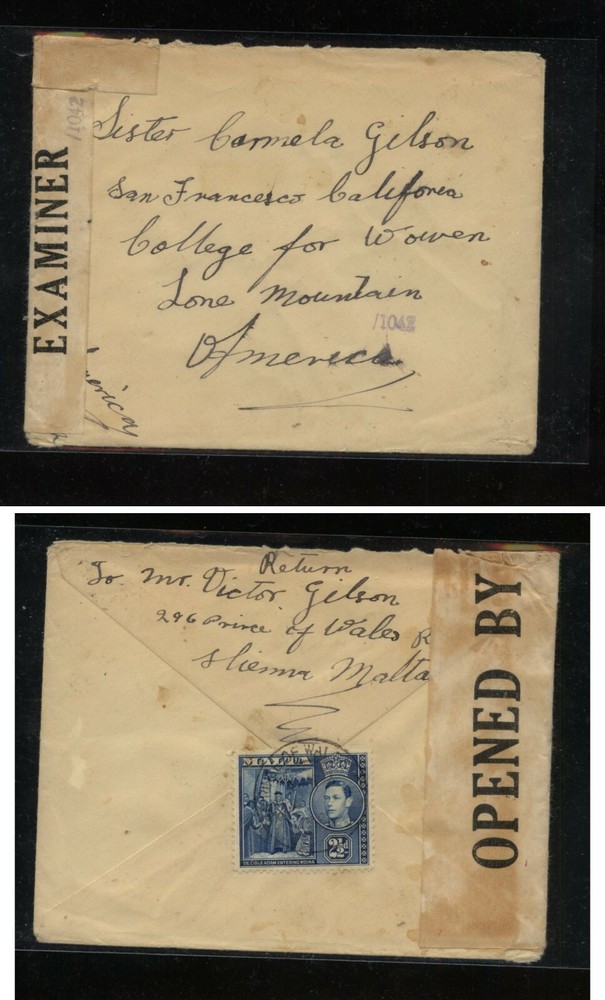 EXAMINER
/1042
Sister Carmela Gilson
San Francesco Califorea
College for Wowen
Lone Mountain
/1042
America
Return
To Mr. Victor Gilson
296 Prince of Wales R
Slienna Malta
OPENED BY
OF WAL
MALTA
DE L'ISLE ADAM ENTERING MDINA
2½d